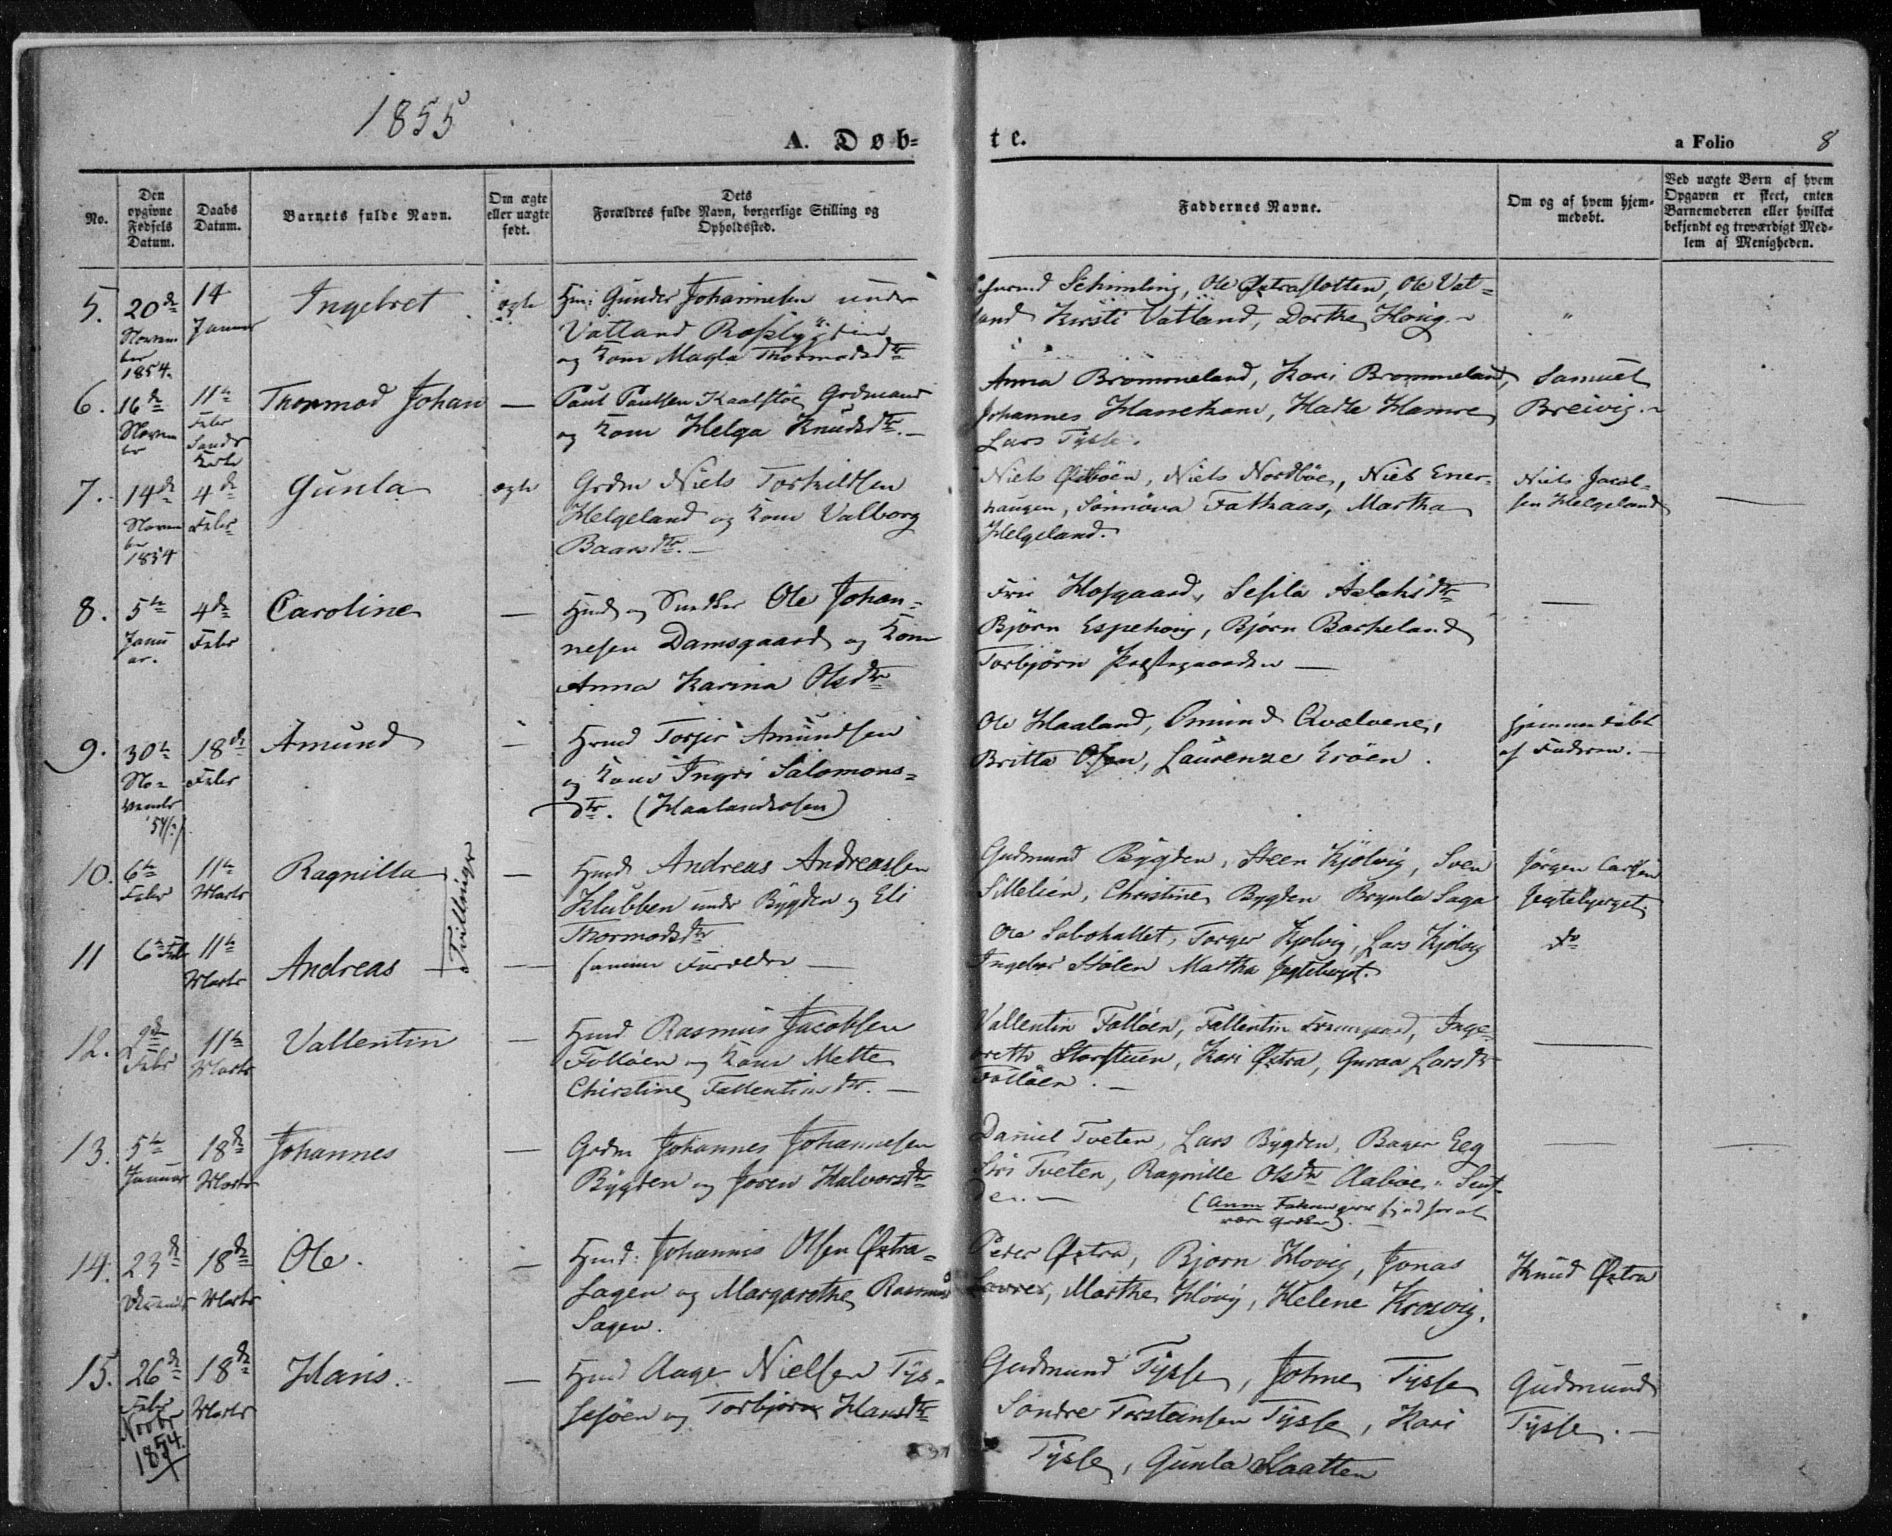 1855
A. Døb-
te.
a Folio
8
No.
Den
opgivne
Fødsels
Datum.
Daabs
Datum.
Barnets fulde Navn.
Om ægte
eller uægte
født.
Dets
Forældres fulde Navn, borgerlige Stilling og
Opholdssted.
Faddernes Navne.
Om og af hvem hjem-
medøbt.
Ved uægte Børn af hvem
Opgaven er skeet, enten
Barnemoderen eller hvilket
bekjendt og troværdigt Med-
lem af Menigheden.
5.
20de
Novem
ber
1854.
14
Januar
Ingebret
ægte
Gunder Johannesen under
Vatland
og Kone Magla Thormodsdtr
Schimling, Ole Østrastotten, Ole Vat-
land Kirsti Vatland, Dorthe Hovig
"
6.
16de
Novem
ber
11te
Febr
Sands
Kirke
Thormod Johan
—
Paul Paulsen Grdmand
og Kone Helga Knudsdtr. —
Anna Brommeland, Kari Brommeland,
Johannes Hanekam, Hadle Hamre
Lars Tysse.
Samuel
Breivig.
7.
14de
Novem
ber
1854
4de
Febr
Gunla
ægte
Grdm Niels Torkildsen
Helgeland og Kone Valborg
Baarsdtr. —
Niels Østbøen, Niels Nordbøe, Niels Ener-
haugen, Sønnøva Fathaas, Martha
Helgeland.
Niels Jacob-
sen Helgeland
—
8.
5te
Janu
ar.
4de
Febr
Caroline
—
Hmd og Snedker Ole Johan-
nesen Damsgaard og Kone
Anna Karina Olsdtr
Hofgaard, Sesila Aslaksdtr
Bjørn Espehovig, Bjørn Barkeland
Torbjørn Præstegaarden —
—
9.
30te
No-
vembr
54/
18de
Febr
Amund
—
Hmd Torjer Amundsen
og Kone Ingri Salomons-
dtr. (Haalandsosen)
Ole Haaland, Omund Qvælvene,
Britta Osen, Laurenze Erøen.
hjemmedøbt
af Faderen. —
10.
6te
Febr
11te
Marts
Ragnilla
Tvillinger
—
Hmd Andreas Andreassen
Klubben under Bygden og Eli
Thormodsdtr
Gudmund Bygden, Steen Kjølvig, Sven
Sillelien, Christine Bygden Brynla Saga
Jørgen Carlsen
Jegteberget.
11
6te Feb
11te
Marts
Andreas
—
samme Forældre —
Ole Sabohallet, Torger Kjølvig, Lars Kjølvig
Ingebor Stølen Martha Jegteberget.
do
12.
9de
Febr
11te
Marts
Vallentin
—
Hmd Rasmus Jacobsen
Folløen og Kone Mette
Christine Fallentinsdtr. —
Vallentin Folløen, Fallentin Inge-
Storstuen, Kari Østra, Guraa Larsdtr
Folløen. —
—
13.
5te
Januar
18de
Marts
Johannes
—
Grdm Johannes Johannesen
Bygden og Joren Halvorsdtr
Daniel Tveten, Lars Bygden, Bager Eeg
Siri Tveten, Ragnille Olsdtr Aabøe
(Anm
—
—
14.
23de
18de
Marts
Ole.
—
Hmd: Johannis Olsen Østra-
Sagen og Margarethe Rasmus
Sagen.
Peder Østra, Bjørn Hovig, Jonas
Marthe Høvig, Helene Krosvig.
Knud Østra
15.
26de
Febr
Novbr
1854.
18de
Marts
Hans.
—
Hmd Aage Nielsen Tys-
sesøen og Torbjørn Hansdtr
Gudmund Tysse, Johne Tysse
Søndre Torsteinsen Tysse, Kari
Tysse, Gunla Slaatten
Gudmund
Tysse. —